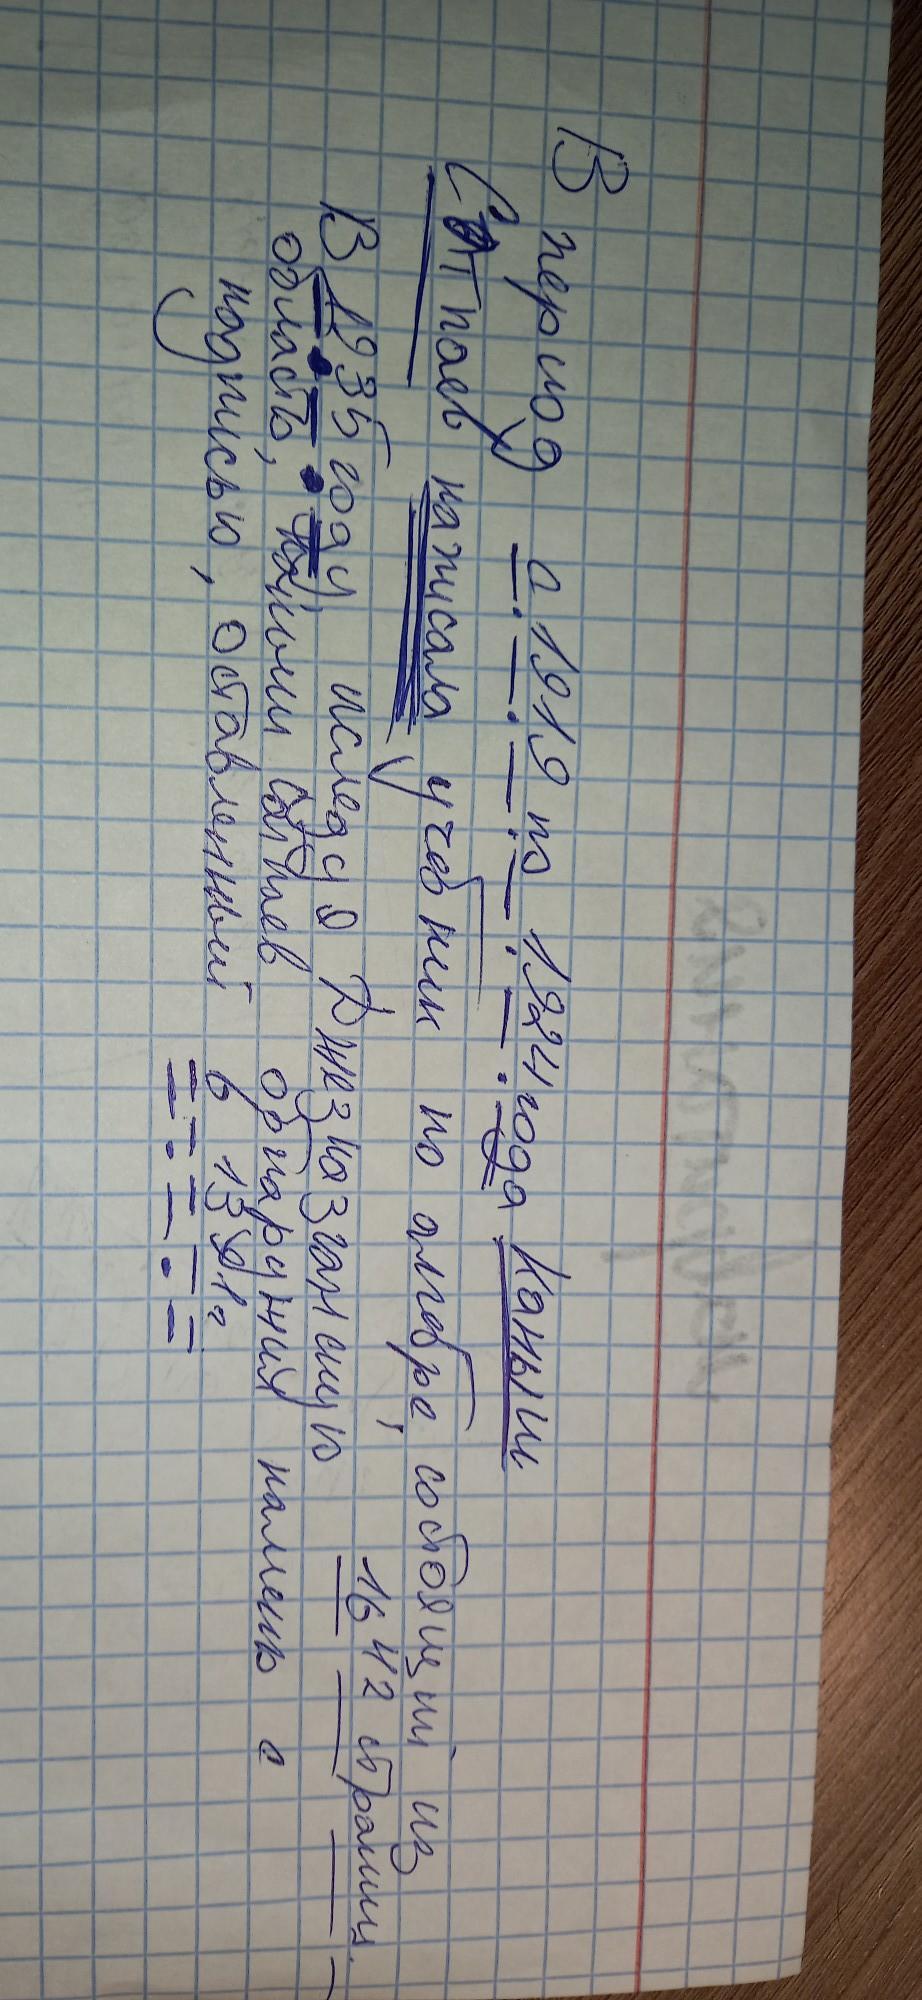 В период с 1919 по 1924 года Каныш
Сатпаев написал учебник по алгебре, состоящий из
1642 страниц.
В 1935 году, исследуя Джезказганскую
область, Каныш Сатпаев обнаружил камень с
надписью, оставленный в 1391г